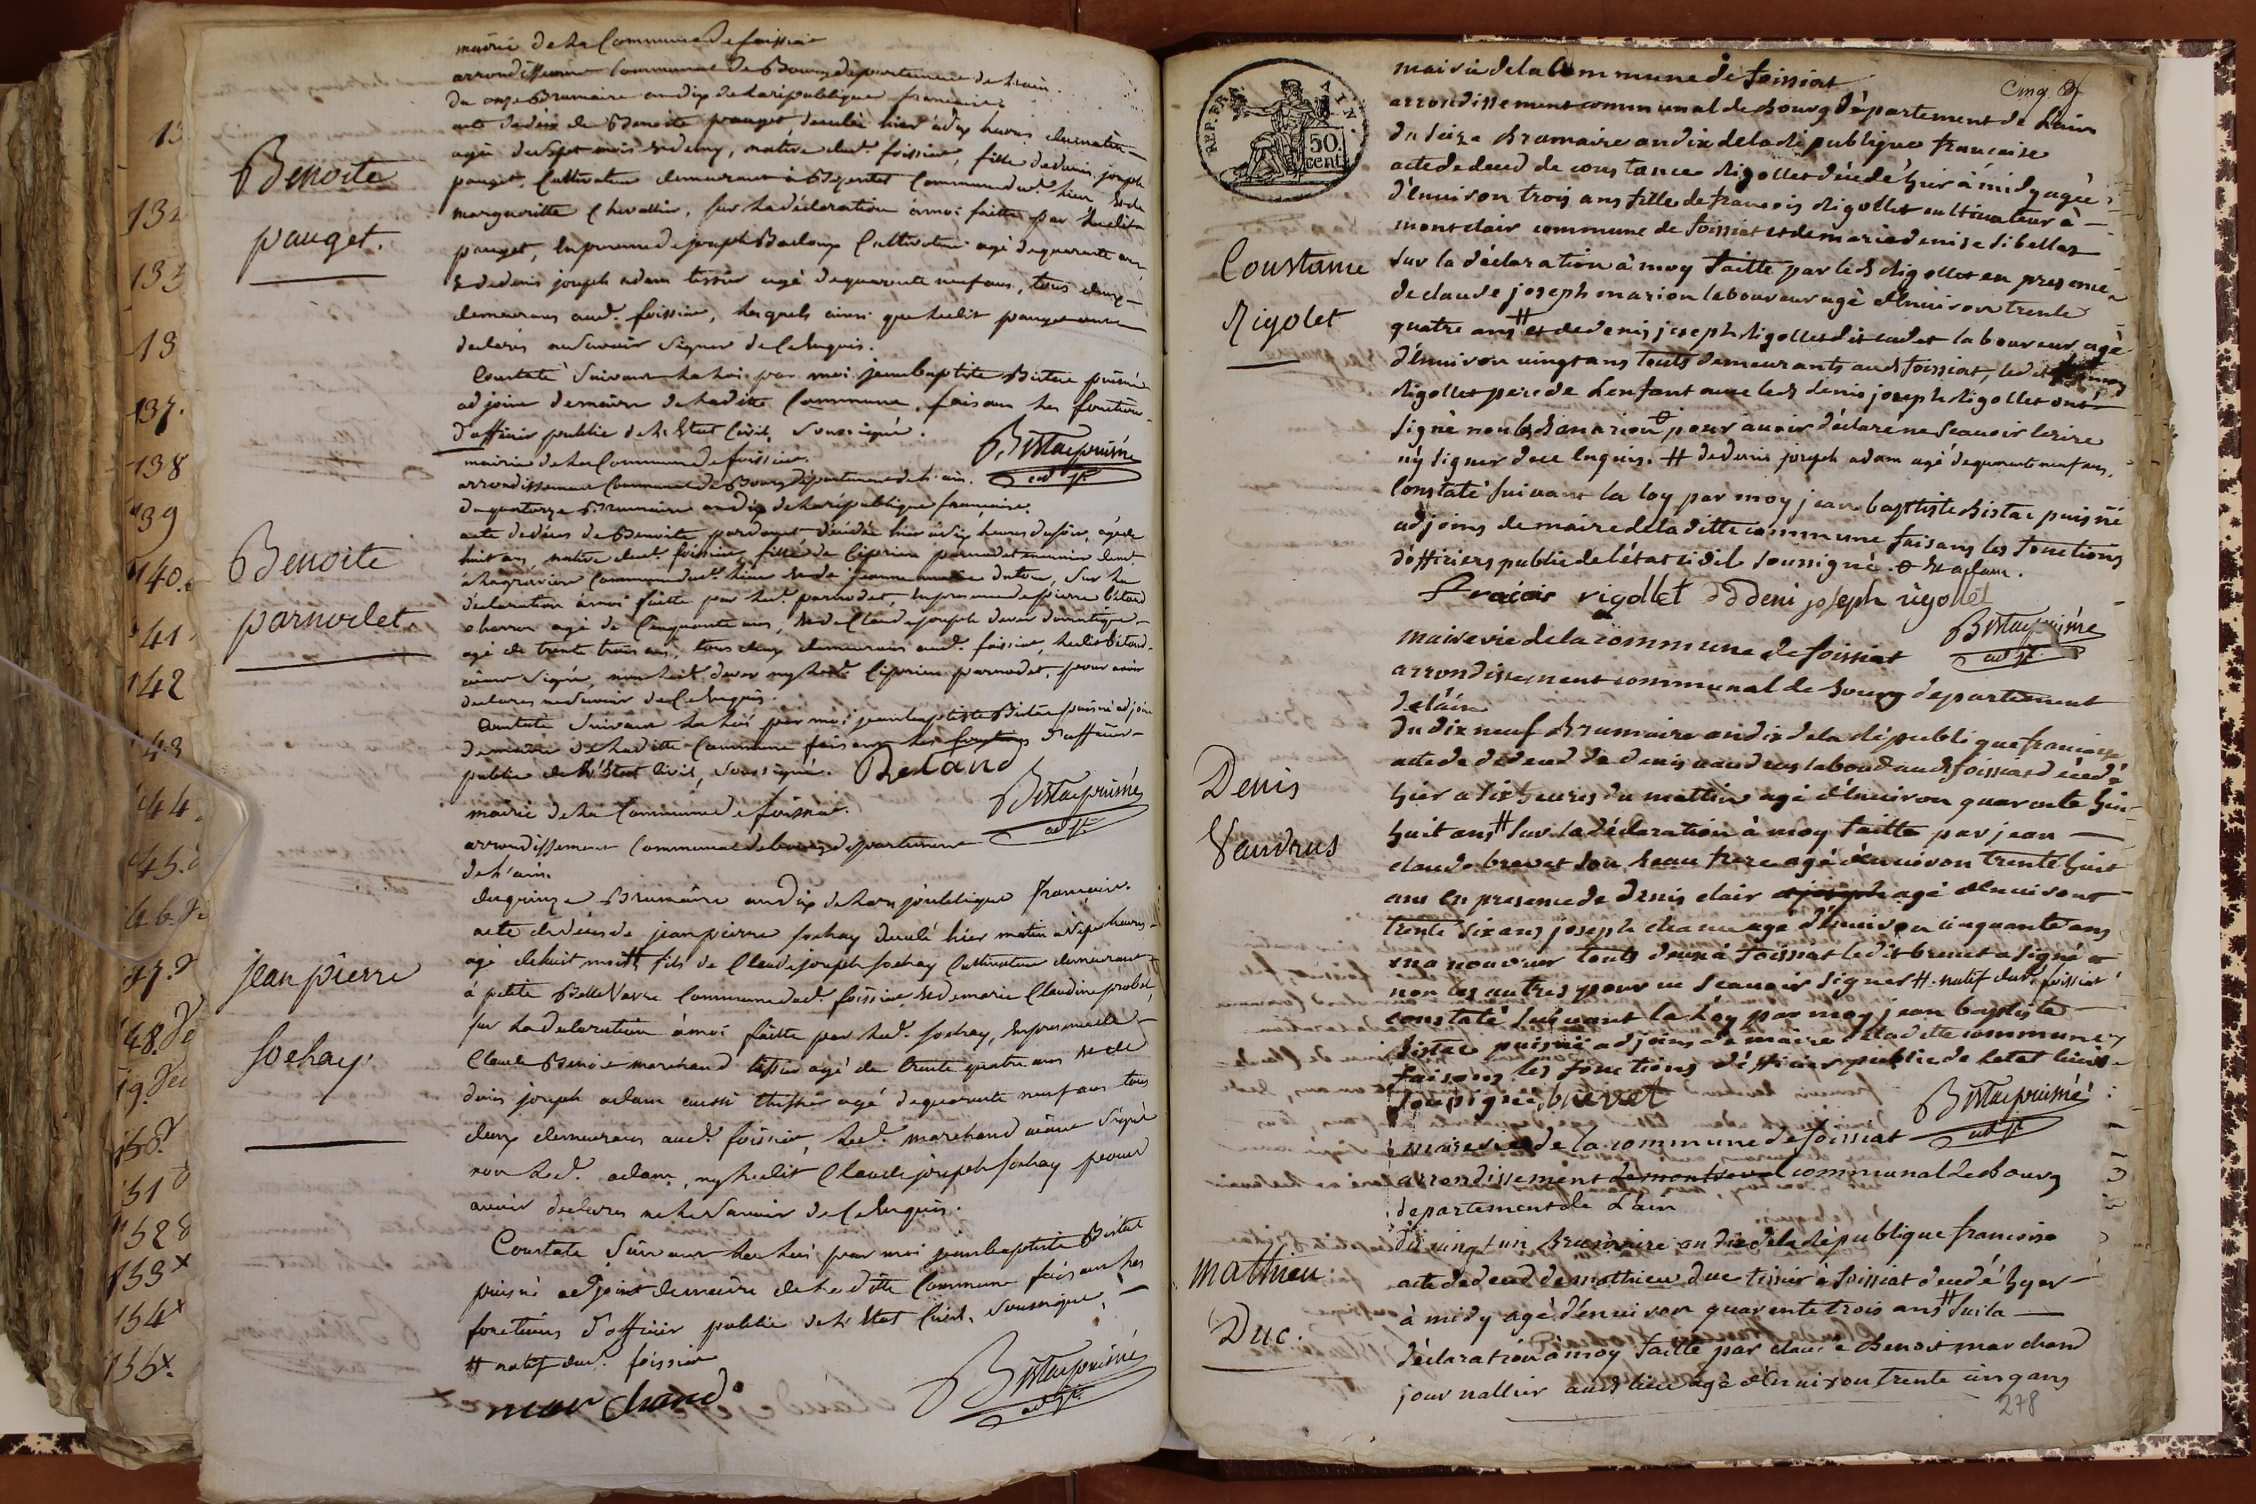 mairie de la Commune de foissiat
arrondissement Communal de Bourg département de l'ain.
du onze Brumaire an dix de la république francaise
acte de décès de Benoite pauget décédée hier à dix heures du matin
agée de sept mois et demy, native dud. foissiat, fille de denis joseph
pauget, Cultivateur demeurant à Commune dud. lieu et de
margueritte Chevallier, sur la déclaration à moi faitte par ledit
pauget, En presence de joseph Cultivateur agé de quarante ans
& de denis joseph adam tissier agé de quarante neuf ans, tous deux
demeurans aud. foissiat, lesquels ainsi que ledit pauget ont
declarés ne Savoir Signer de Ce Enquis.
Constaté Suivant la Loi par moi jean baptiste Bistac puisné
adjoint de maire de la ditte Commune, faisant les fonctions
D'officier public de L'Etat Civil, Soussigné.
Bistac puisné
adjt.
Benoite
pauget.
mairie de la Commune de foissiat.
arrondissement Communal de Bourg département de L'ain.
du quatorze Brumaire an dix de la république française.
acte de décès de Benoite parnodet décédée hier à dix heures du soir, agée de
huit ans, native dud. foissiat, fille de Ciprien parnodet demt.
à Lagravier Commune dud. lieu et de jeanne marie dufour, Sur la
déclaration à moi faitte par led. parnodet, En presence de pierre Bétand
charron agé de Cinquante ans, & de Claude joseph domestique
agé de trente trois ans, tous deux demeurans aud. foissiat, ledit Bétand
aiant Signé, non led. ny led. Ciprien parnodet, pour avoir
declarés ne Savoir de Ce Enquis
Constaté Suivant la Loi par moi jean baptiste Bistac puisné adjoint
de maire de la ditte Commune faisant les fonctions d'officier
public de L'Etat Civil, Soussigné. Betand
Bistac puisné
adjt.
Benoite
parnodet.
mairie de la Commune de foissiat.
arrondissement Communal de bourg département
de L'ain.
du quinze Brumaire an dix de la république Française.
acte de décès de jean pierre sochay décédé hier matin à sept heures
agé de huit mois # fils de Claude joseph sochay Cultivateur demeurant
à petite Bellevavre Commune dud. foissiat & de marie Claudine probet,
sur la declaration à moi faitte par led. sochay, En presence de
Claude Benoit marchand tissier agé de trente quatre ans & de
denis joseph adam aussi tissier agé de quarante neuf ans tous
deux demeurans aud. foissiat, led. marchand aiant Signé
non led. adam, ny ledit Claude joseph sochay pour
avoir declarés ne le Savoir de Ce Enquis.
Constaté Suivant la Loi par moi jean baptiste Bistac
puisné adjoint de maire de la ditte Commune faisant les
fonctions d'officier public de L'Etat Civil, Soussigné.
# natif dud. foissiat
mar chand
Bistac puisné
adjt.
jean pierre
sochay
137.
138
139
140.
141
142
151
152
153x
154x
155x.
REP. FRA.
AIN.
50.
cent.
Cinq
mairie de la Commune de foissiat
arrondissement communal de bourg département de Lain
du seize Brumaire an dix de la république francaise
acte de deced de constance Rigollet décédé hier à midy agèe
d'environ trois ans fille de francois Rigollet cultivateur à
montclair commune de foissiat et de marie denise sibellas
sur la déclaration à moy faitte par led Rigollet en presence
de claude joseph marion laboureur agè d'environ trente
quatre ans # et de denis joseph Rigollet dit cadet laboureur agè
d'environ vingt ans touts demeurants aud foissiat, ledit
Rigollet pere de Lenfant avec led denis joseph Rigollet ont
signè non led marion pour avoir déclaré ne scavoir Ecrire
ny signer de ce Enquis. # de denis joseph adam agé de quarante neuf ans.
Constaté suivant la loy par moy jean baptiste Bistac puisné
adjoint de maire de la ditte commune faisant les fonctions
d'officiers public de l'état cidil soussigné. & adam.
Fraçois rigollet deni joseph rigollet
Bistac puisné
adjt.
Constance
Rigolet
maireriè de la commune de foissiat
arrondissement communal de bourg departement
de láin
du dix neuf Brumaire an dix de la république francaise
acte de deced de denis vaudrus laboud aud foissiat décédé
hier a dix heures du mattin agé d'environ quarente
huit ans # sur la déclaration à moy faitte par jean
claude brevet son beau frere agé d'environ trente huit
ans En presence de denis clair agé d'environt
trente six ans joseph agé d'environ cinquante ans
touts deux à foissiat ledit brevet a signé
non les autres pour ne scavoir signer # natif dud. foissiat
constaté suivant la Loy par moy jean baptiste
Bistac puisné adjoint de maire de la dite commune
faisant les fonctions d'officier public de letat civil
soussigné, brevet
Bistac puisné
adjt.
Denis
Vaudrus
maireriè de la commune de foissiat
arrondissement de montrevel communal de bourg
departement de Lain
du vingt un Brumaire an dix de la république francaise
acte de deced de mathieu duc tissier à foissiat decedé hyer
à midy agé d'environ quarente trois ans # sur la
déclaration à moy faitte par claude Benoit marchand
journallier aud lieu agé d'environ trente cinq ans
278
mathieu
Duc.